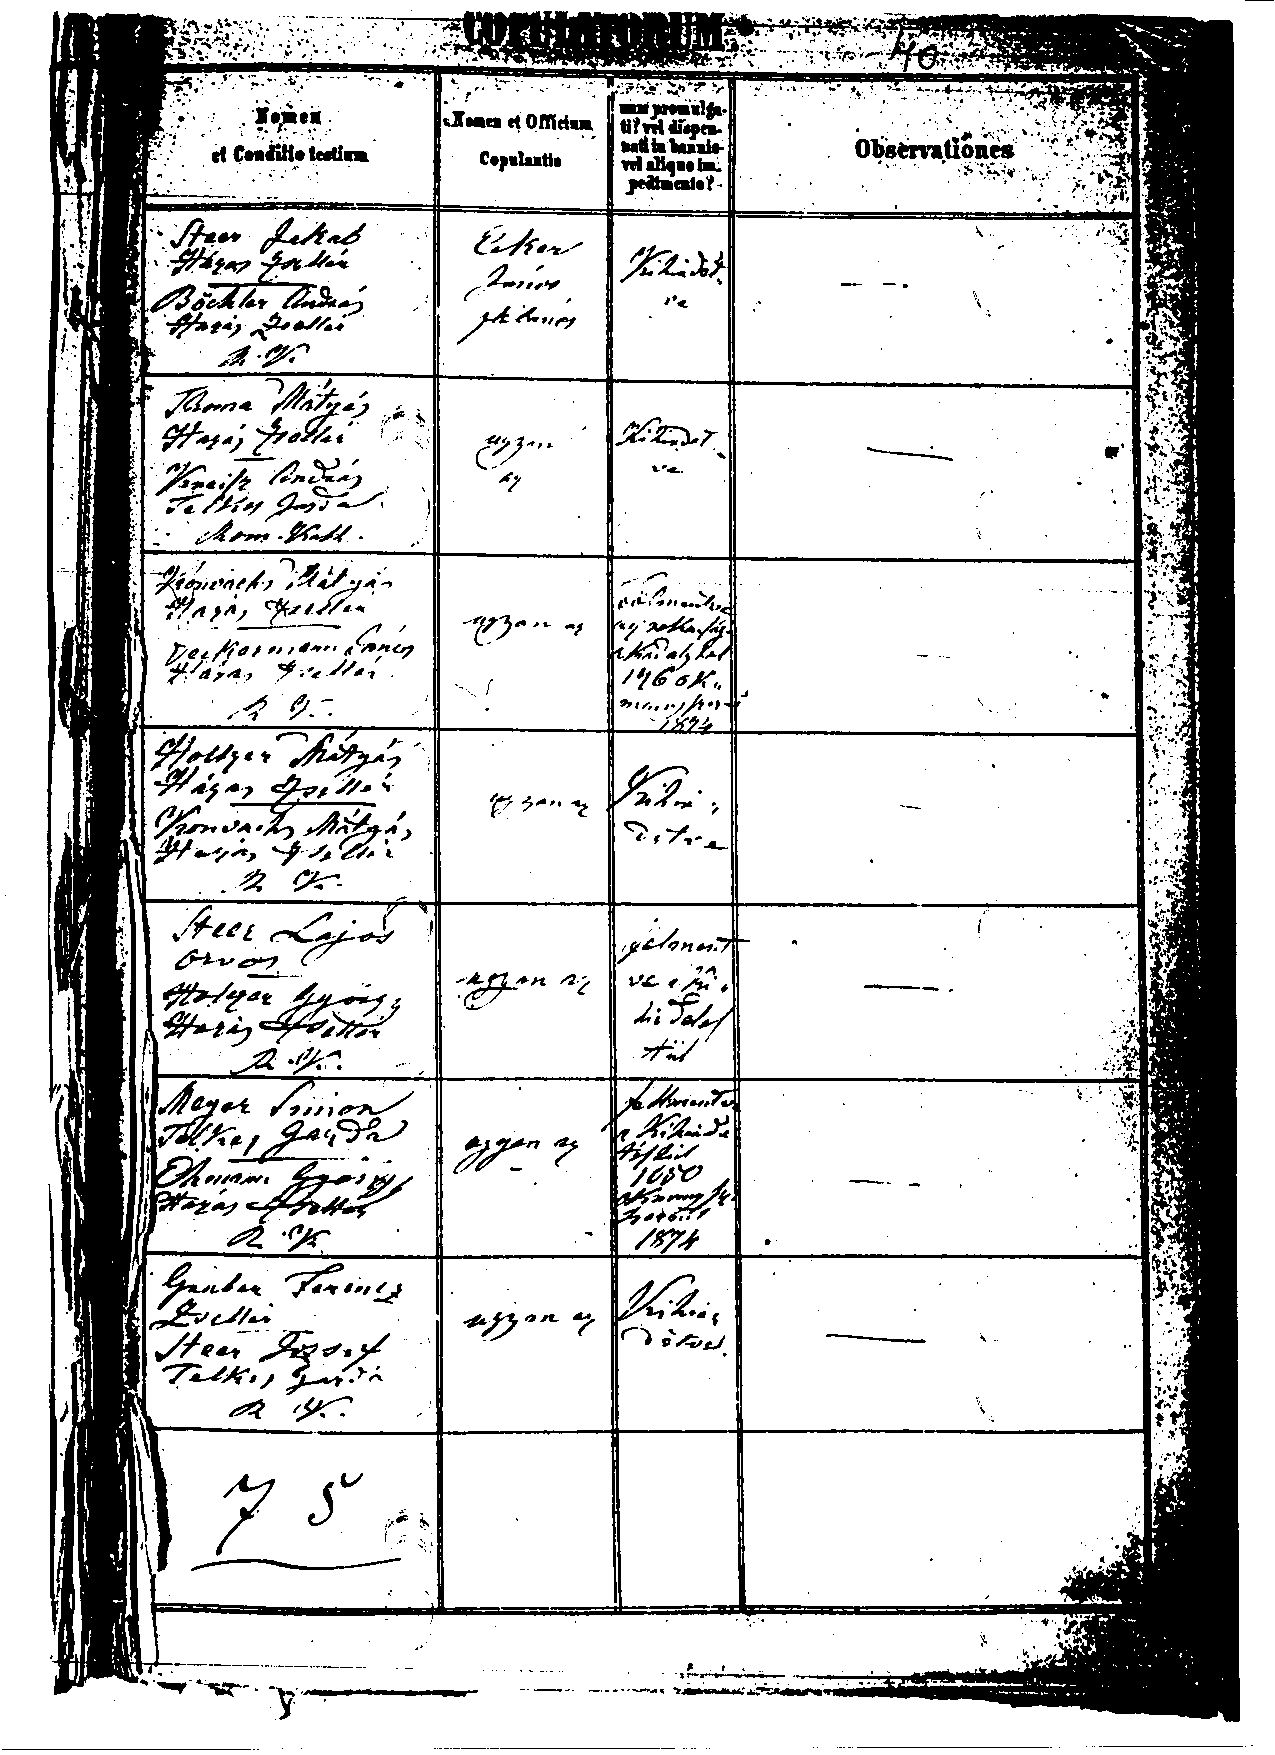 COPULATORUM
40
Nomen
et Conditio testium
Nomen et Officium
Copulantis
num promulga-
ti? vel dispen-
sati in bannis
vel aliquo im-
pedimento?
Observationes
Steer Jakab
Házas Zsellér
Böchler András
Házas Zsellér
R. K.
Ecker
János
plébános
Kihirdet
ve
Mátyás
Házas Zsellér
András
Telkes Gazda
Rom. Kath.
ugyan
az
Kihirdet
ve
Mátyás
Házas Zsellér
János
Házas Zsellér
R. K.
ugyan az
1874
Holtzer Mátyás
Házas Zsellér
Mátyás
Házas Zsellér
R. K.
ugyan az
Kihir
detve
Steer Lajos
orvos
Holczer György
Házas Zsellér
R. K.
ugyan az
felment
ve a ki
hirdetés
től
Meyer Simon
Telkes Gazda
György
Házas Zsellér
R. K.
ugyan az
felmentve
a kihirde
téstől
1050
1874
Gruber Ferencz
Zsellér
Steer József
Telkes Gazda
R. K.
ugyan az
Kihir
detve
75